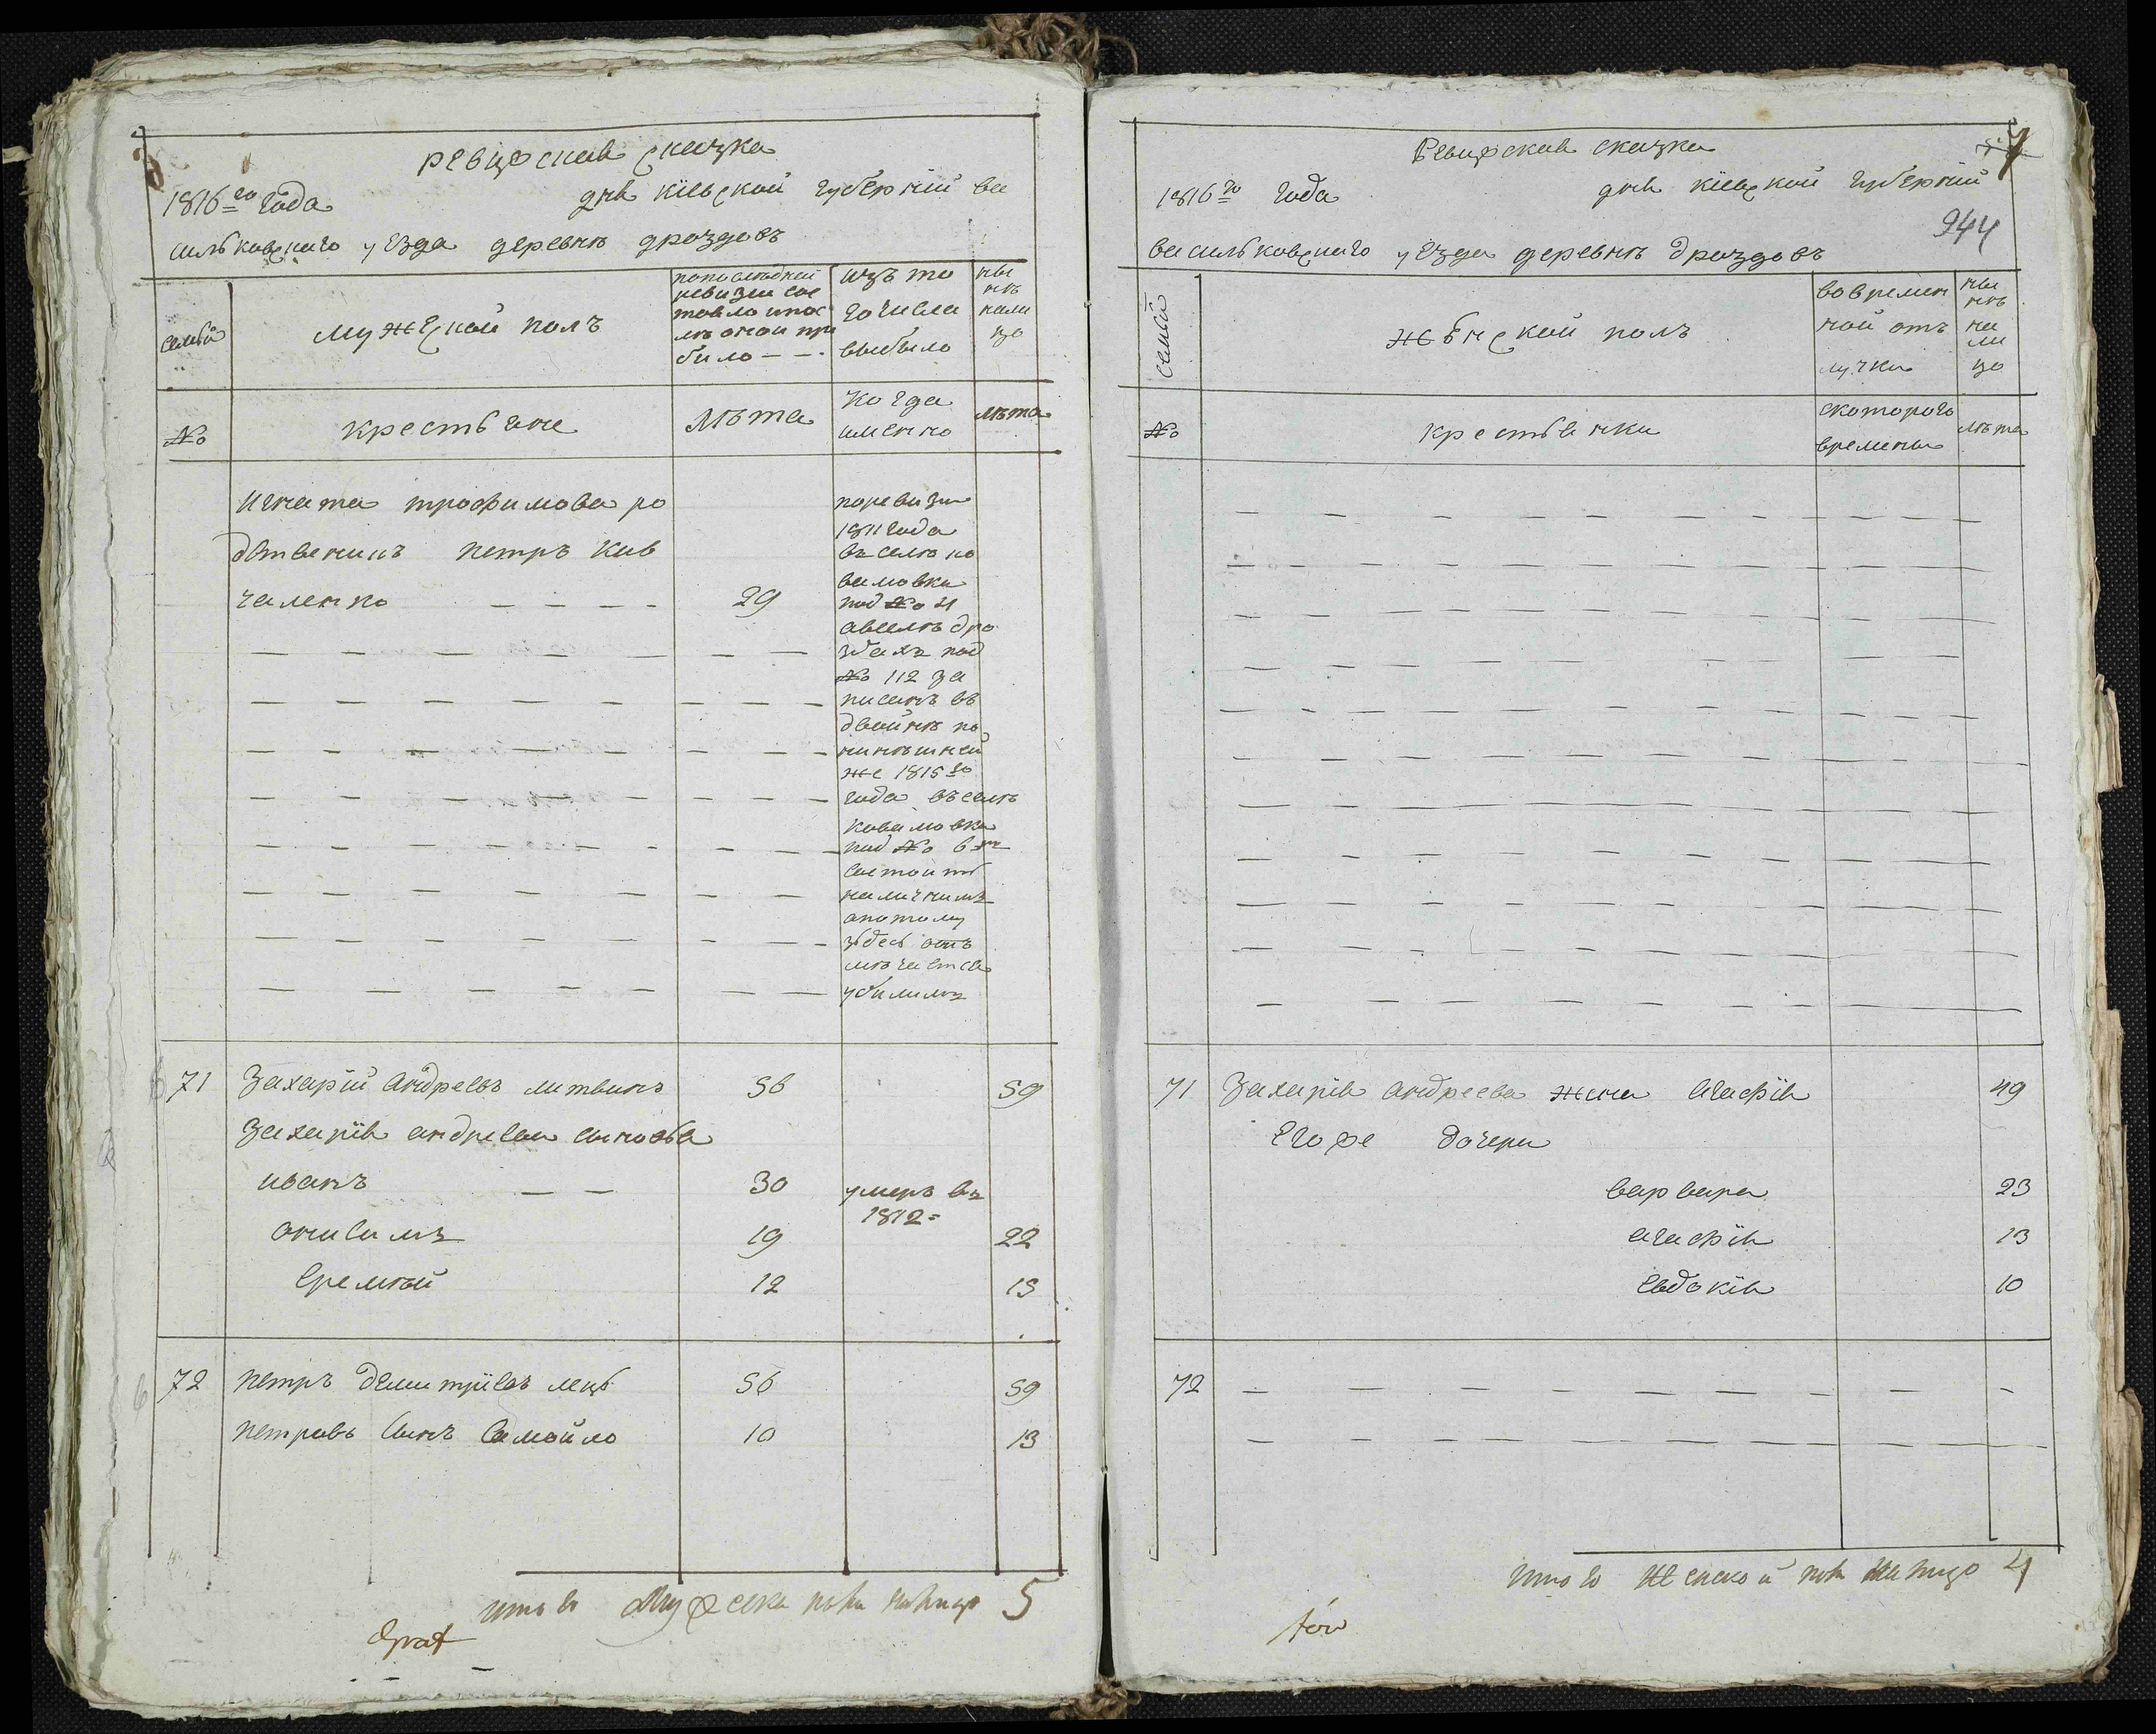 ревизская сказка
1816го года дня кіевской губерніи ва
сильковского уезда деревнѣ дроздовъ
семьи
мужеской полъ
попоследней
ревизіи сос
тояло ипос
лѣ оной при
было
изъ то
го числа
выбыло
ны
нѣ
нали
цо
№
крестьяне
лѣта
когда
именно
лѣта
игната трофимова ро
дственикъ петръ кив
чаленко 29
поревизіи
1811 года
въ селѣ ко
валовки
под № 4
авселѣ дро
здахъ под
№ 112 за
писанъ въ
двойнѣ по
нинѣшней
же 1815го
года въселѣ
коваловки
под № 6м
состоитъ
наличнимъ
апотому
здесь отъ
мѣчается
убилимъ
71 Захарій андреевъ литвинъ 56 59
Захарія андреева сыновья
иванъ 30 умеръ въ
1812
онисимъ 19 22
еремѣй 12 15
72 петръ демитріевъ лецъ 56 59
петровъ сынъ самойло 10 13
итого мужеска пола налицо 5
Graf
7
Ревизская сказка
1816го года дня кіевской губерніи
944
васильковского уезда деревнѣ дроздовъ
семьи
женской полъ
вовремен
ной отъ
лучки
ны
нѣ
на
ли
цо
№
крестьянки
скоторого
времены
лѣта
71 Захарія андреева жена агафія 49
его же дочери
варвара 23
агафія 13
евдокія 10
72
итого женской пола налицо 4